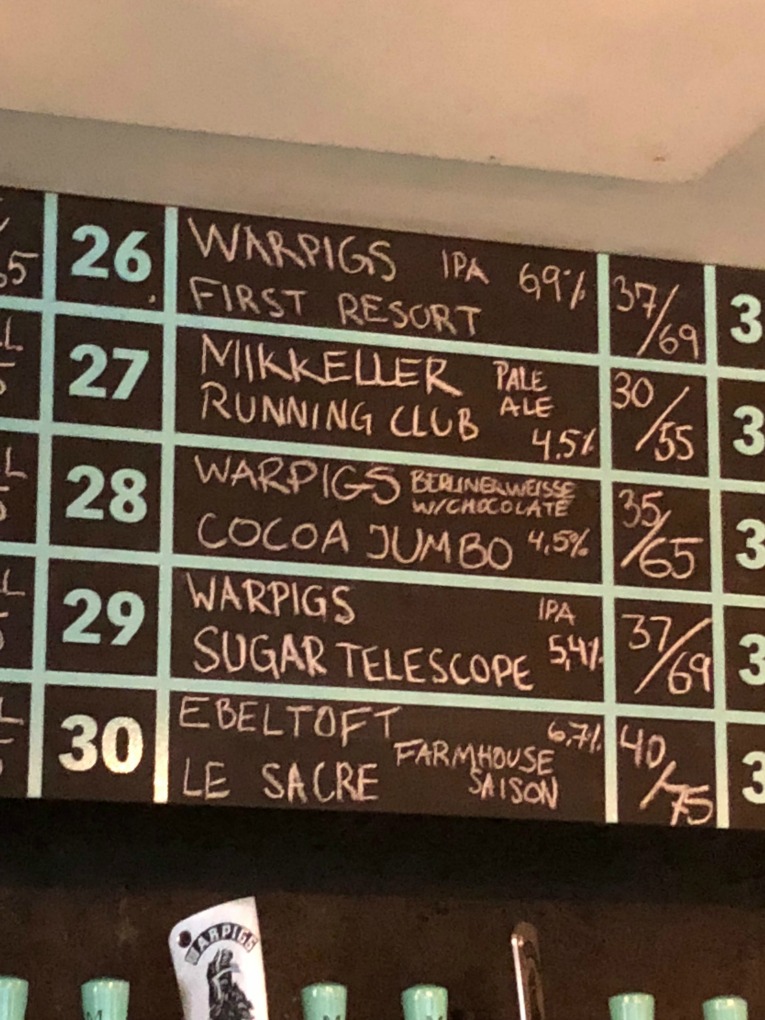 26 WARPIGS IPA 6,9%
FIRST RESORT
37/69
27 MIKKELLER PALE ALE
RUNNING CLUB 4.5%
30/55
28 WARPIGS BERLINERWEISSE
W/CHOCOLATE
COCOA JUMBO 4,5%
35/65
29 WARPIGS IPA
SUGAR TELESCOPE 5,4%
37/69
30 EBELTOFT 6,7%
FARMHOUSE
LE SACRE SAISON
40/75
WARPIGS